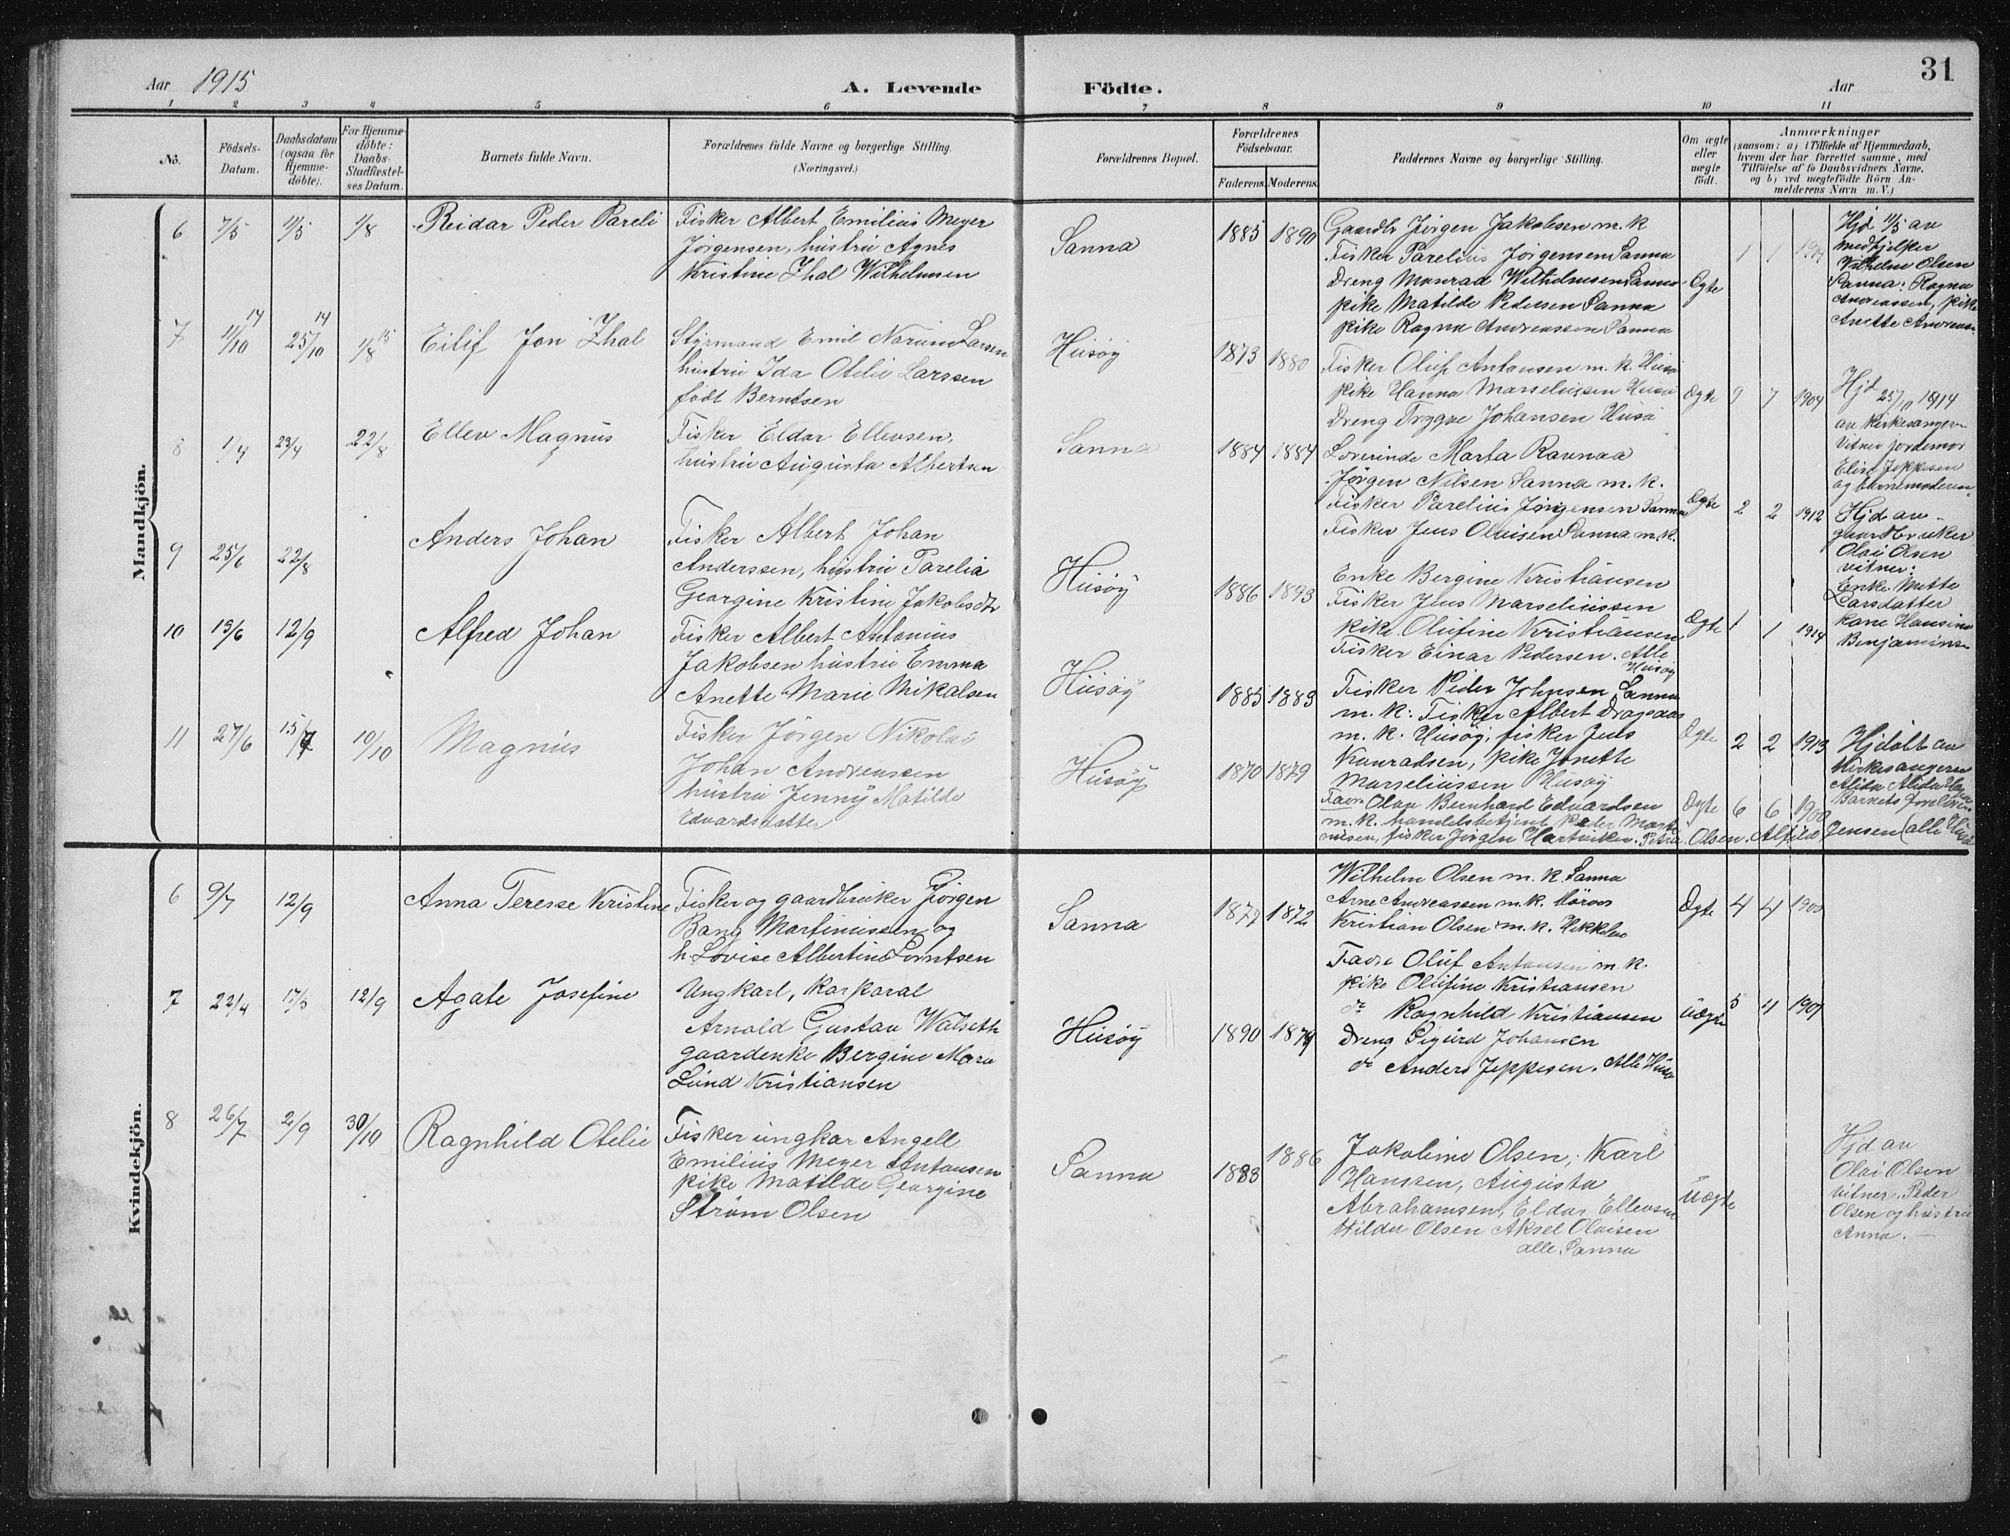 31
Aar 1915
A. Levende Födte.
Aar
1 2 3 4 5 6 7 8 9 10 11
No.
Födsels-Datum.
Daabsdatum (ogsaa for Hjemme-döbte).
For Hjemme-döbte: Daabs-Stadfæstel-ses Datum.
Barnets fulde Navn.
Forældrenes fulde Navne og borgerlige Stilling. (Næringsvei.)
Forældrenes Bopæl.
Forældrenes Födselsaar.
Faderens. Moderens.
Faddernes Navne og borgerlige Stilling.
Om ægte eller uægte födt.
Anmærkninger
(saasom: a) i Tilfælde af Hjemmedaab,
hvem der har forrettet samme, med
Tilföielse af to Daabsvidners Navne,
og b) ved uægtefödte Börn An-
melderens Navn m. V.)
Mandkjön.
6 7/5 11/5 1/8 Reidar Peder Pareli
Fisker Albert Emilius Meyer
Jörgensen, hustru Agnes
Kristine Thal Wilhelmsen
Sanna
1885 1890
Gaardbr Jörgen Jakobsen m.k
Fisker Parelius Jörgensen Sanna
Dreng Monrad Wilhelmsen Sanna
pike Matilde Pedersen Sanna
pike Ragna Andreassen Sanna
Ægte
1 1 1909
Hjd 11/5 av
medhjelper
Vilhelm Olsen
Sanna: Ragna
Andreassen, pike
Anette Andreassen
7 11/10 14 25/10 14 1/8 15 Eilif Jon Thal
Styrmand Emil Norum Larsen
hustru Ida Otelie Larssen
födt Berntsen
Husöy
1873 1880
Fisker Oluf Antonsen m.k. Husö
pike Hanna Marseliussen Husö
Dreng Trygve Johansen Husö
Ægte
9 7 1904
Hjd 25/10 1914
av Kirkesanger
Vitner jordemor
Elise Jeppesen
og barnemoderen.
8 1/4 23/4 22/8 Ellev Magnus
Fisker Eldar Ellevsen,
hustru Augusta Albertsen
Sanna
1884 1884
Lærerinde Marta Ravnaa
Jörgen Nilsen Sanna m.k.
Fisker Parelius Jörgensen Sanna
Fisker Jens Olaisen Sanna m.k.
Ægte
2 2 1912
Hjd av
gaardbruker
Olai Olsen
vitner:
Enke Mette
Larsdatter
kone Hansine
Benjaminsen
9 25/6 22/8 Anders Johan
Fisker Albert Johan
Anderssen, hustru Parelia
Georgine Kristine Jakobsdtr
Husöy
1886 1893
Enke Bergine Kristiansen
Fisker Jens Marseliussen
pike Olufine Kristiansen
Fisker Einar Pedersen. Alle
Husöy
Ægte
1 1 1914
10 13/6 12/9 Alfred Johan
Fisker Albert Antonius
Jakobsen hustru Emma
Anette Marie Mikalsen
Husöy
1885 1883
Fisker Peder Johnsen Sanna
m.k: Fisker Albert Dragaas
m.k. Husöy, fisker Jens
Konradsen, pike Jonette
Marseliussen Husöy
Ægte
2 2 1913
11 27/6 15/7 10/10 Magnus
Fisker Jörgen Nikolai
Johan Andreassen
hustru Jenny Matilde
Edvardsdatter
Husöy
1870 1879
Fadre Olav Bernhard Edvardsen
m.k. handelsbetjent Peder Mart
nussen, fisker Jörgen Hartviksen. Petra Olsen. Alfild Jensen (alle Husö
Ægte
6 6 1900
Hjdöbt av
Kirkesangeren
Barnets Forældre
Kvindekjön.
6 9/7 12/9 Anna Terese Kristine
Fisker og gaardbruker Jörgen
Bang Martinussen og
h. Lovise Albertine Lorntsen
Sanna
1877 1872
Wilhelm Olsen m.k. Sanna
Arne Andreassen m.k.
Kristian Olsen m.k.
Ægte
4 4 1903
7 22/4 17/5 12/9 Agate Josefine
Ungkarl, korporal
Arnold Gustav Walseth
gaardenke Bergine Mora
Lund Kristiansen
Husöy
1890 1879
Fadre Oluf Antonsen m.k.
pike Olufine Kristiansen
do Ragnhild Kristiansen
Dreng Sigurd Johansen
do Anders Jeppesen. Alle Husö
Uægte
5 4 1907
8 26/7 2/9 30/10 Ragnhild Otelie
Fisker ungkar Angell
Emilius Meyer Antonsen
pike Matilde Georgine
Ström Olsen
Sanna
1883 1886
Jakobine Olsen, Karl
Hanssen, Augusta
Abrahamsen, Eldar Ellevsen
Hilda Olsen Aksel Olaisen
alle Sanna
Uægte
Hjd av
Olai Olsen
vitner. Peder
Olsen og hustru
Anna. —